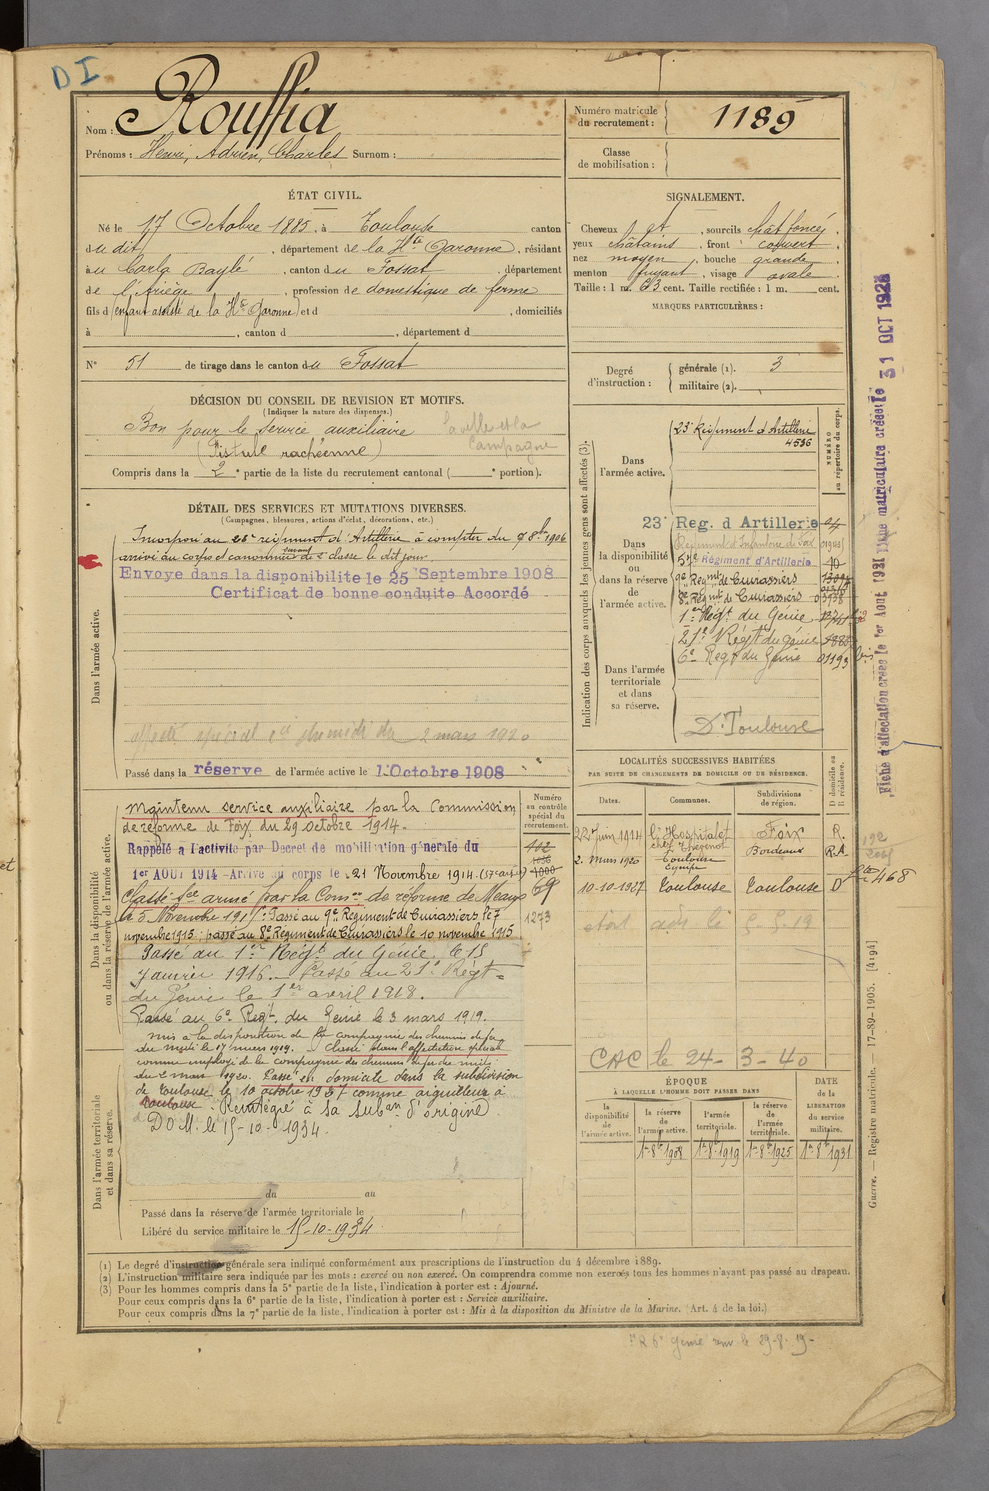 D I
Nom : Rouffia
Prénoms : Henri, Adrien, Charles Surnom :
Numéro matricule
du recrutement :
1189
Classe
de mobilisation :
ÉTAT CIVIL.
Né le 17 Octobre 1885, à Toulouse canton
du dit, département de la Hte Garonne, résidant
à u Carla Baylé, canton du Fossat, département
de l'Ariège, profession de domestique de ferme
fils d (enfant assisté de la Hte Garonne) et d , domiciliés
à , canton d , département d
N° 51 de tirage dans le canton du Fossat
SIGNALEMENT.
Cheveux , sourcils chât foncé,
yeux châtains, front couvert,
nez moyen, bouche grande,
menton fuyant, visage ovale.
Taille : 1 m. 63 cent. Taille rectifiée : 1 m. cent.
MARQUES PARTICULIÈRES :
Degré
d'instruction :
générale (1). 3
militaire (2).
DÉCISION DU CONSEIL DE REVISION ET MOTIFS.
(Indiquer la nature des dispenses.)
Bon pour le service auxiliaire
(Fistule rachéenne)
la ville et la
Campagne
Compris dans la 2e partie de la liste du recrutement cantonal ( e portion).
DÉTAIL DES SERVICES ET MUTATIONS DIVERSES.
(Campagnes, blessures, actions d'éclat, décorations, etc.)
Dans l'armée active.
Incorporé au 23e régiment d'Artillerie à compter du 7 8bre 1906
arrivé au corps et canonnier servant de 2e classe le dit jour
Envoyé dans la disponibilité le 25 Septembre 1908
Certificat de bonne conduite Accordé
affecté spécial cie ch midi du 2 mars 1920
Passé dans la réserve de l'armée active le 1er Octobre 1908
Indication des corps auxquels les jeunes gens sont affectés (3).
NUMÉRO
au répertoire du corps.
Dans
l'armée active.
23e Régiment d'Artillerie
4536
Dans
la disponibilité
ou
dans la réserve
de
l'armée active.
23e Reg. d Artillerie
Régiment d'Infanterie de Foix
Régiment d'Artillerie 10
9e Regmt de Cuirassiers
8e Regmt de Cuirassiers
1er Régt du Génie
21e Régt du génie
6e Regt du Génie 01193
Dans l'armée
territoriale
et dans
sa réserve.
D. Toulouse
Dans la disponibilité
ou dans la réserve de l'armée active.
Numéro
au contrôle
spécial du
recrutement.
Maintenu service auxiliaire par la Commission
de réforme de Foix du 29 octobre 1914.
Rappelé à l'activité par Decret de mobilisation générale du
1er AOUT 1914 - Arrivé au corps le 21 Novembre 1914. (57e art)
Classé sce armé par la Comon de réforme de Meaux
le 5 Novembre 1915. Passé au 9e Régiment de Cuirassiers le 7
novembre 1915 : passé au 8e Régiment de Cuirassiers le 10 novembre 1915
Passé au 1er Régt du Génie le 15
Janvier 1916. - Passé au 21e Régt
du Génie le 1er avril 1918.
Passé au 6e Regt. du Genie le 3 mars 1919.
mis à la disposition de la compagnie des chemins de fer
du midi le 17 mars 1919. Classé dans l'affectation spéciale
comme employé de la compagnie des chemins de fer du midi
du 2 mars 1920. Passé en domicile dans la subdivision
de Toulouse le 10 octobre 1927 comme aiguilleur à
Toulouse. Réintégré à la subon d'origine
DO M. le 15-10-1934.
69
1273
Dans l'armée territoriale
et dans sa réserve.
du au
Passé dans la réserve de l'armée territoriale le
Libéré du service militaire le 15-10-1934
LOCALITÉS SUCCESSIVES HABITÉES
PAR SUITE DE CHANGEMENTS DE DOMICILE OU DE RÉSIDENCE.
Dates. Communes. Subdivisions de région. D domicile ou R résidence.
22 Juin 1914 l'Hospitalet Foix R.
2. Mars 1920 Toulouse Bordeaux R.A
10-10-1927 Toulouse Toulouse D
468
CAC le 24-3-40
ÉPOQUE
À LAQUELLE L'HOMME DOIT PASSER DANS
DATE
de la
LIBÉRATION
du service
militaire.
la disponibilité de l'armée active.
la réserve de l'armée active.
l'armée territoriale.
la réserve de l'armée territoriale.
1er 8bre 1908 1er 8bre 1919 1er 8bre 1925 1er 8bre 1931
(1) Le degré d'instruction générale sera indiqué conformément aux prescriptions de l'instruction du 4 décembre 1889.
(2) L'instruction militaire sera indiquée par les mots : exercé ou non exercé. On comprendra comme non exercés tous les hommes n'ayant pas passé au drapeau.
(3) Pour les hommes compris dans la 5e partie de la liste, l'indication à porter est : Ajourné.
Pour ceux compris dans la 6e partie de la liste, l'indication à porter est : Service auxiliaire.
Pour ceux compris dans la 7e partie de la liste, l'indication à porter est : Mis à la disposition du Ministre de la Marine. (Art. 4 de la loi.)
6e génie le 29-8-19-
Fiche d'affectation créée le 1er Août 1921 Fiche matriculaire créée le 31 OCT 1928
Guerre. — Registre matricule. — 17-89-1905. [4194]